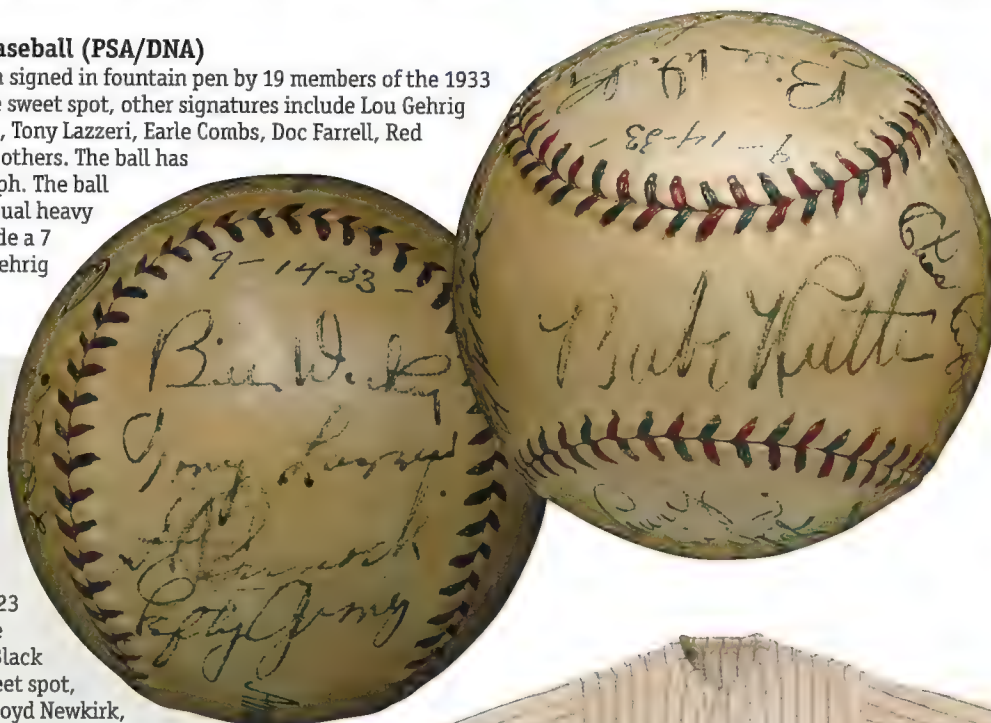 aseball (PSA/DNA)
signed in fountain pen by 19 members of the 1933
sweet spot, other signatures include Lou Gehrig
, Tony Lazzeri, Earle Combs, Doc Farrell, Red
others. The ball has
ph. The ball
ual heavy
de a 7
ehrig
23
Black
eet spot,
oyd Newkirk,
9-14-33-
Bill Dickey
Tony Lazzeri
Lefty Gomez
9-14-33-
Babe Ruth